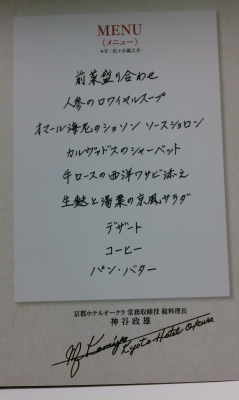 MENU
《メニュー》
前菜盛り合わせ
人参のロワイヤルスープ
オマール海老のショソン ソースショロン
カルヴァドスのシャーベット
牛ロースの西洋ワサビ添え
生麩と湯葉の京風サラダ
デザート
コーヒー
パン・バター
京都ホテルオークラ 常務取締役 総料理長
神谷政雄
M Kamiya
Kyoto Hotel Okura